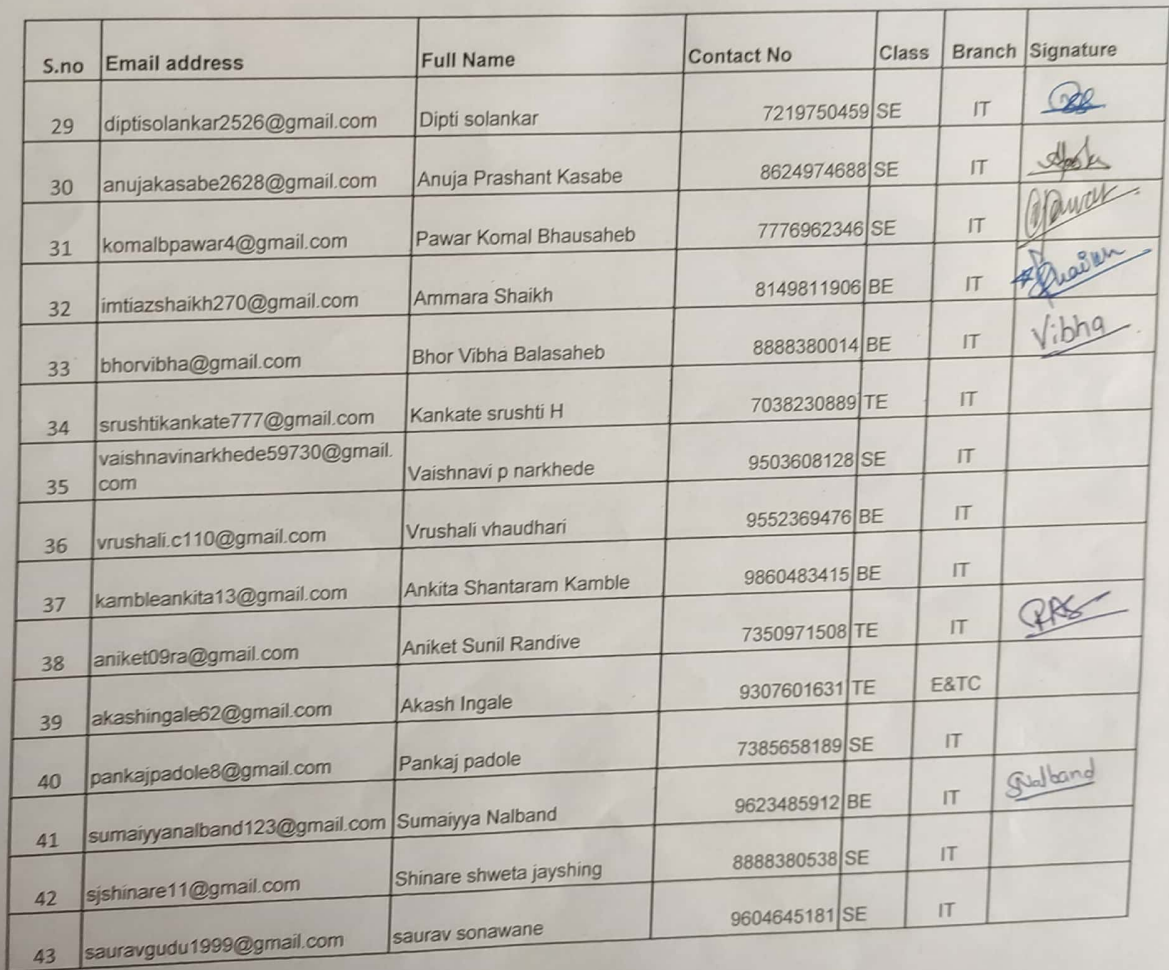 S.no Email address Full Name Contact No Class Branch Signature
29 diptisolankar2526@gmail.com Dipti solankar 7219750459 SE IT
30 anujakasabe2628@gmail.com Anuja Prashant Kasabe 8624974688 SE IT
31 komalbpawar4@gmail.com Pawar Komal Bhausaheb 7776962346 SE IT
32 imtiazshaikh270@gmail.com Ammara Shaikh 8149811906 BE IT
33 bhorvibha@gmail.com Bhor Vibha Balasaheb 8888380014 BE IT Vibha
34 srushtikankate777@gmail.com Kankate srushti H 7038230889 TE IT
vaishnavinarkhede59730@gmail.
35 com Vaishnavi p narkhede 9503608128 SE IT
36 vrushali.c110@gmail.com Vrushali vhaudhari 9552369476 BE IT
37 kambleankita13@gmail.com Ankita Shantaram Kamble 9860483415 BE IT
38 aniket09ra@gmail.com Aniket Sunil Randive 7350971508 TE IT
39 akashingale62@gmail.com Akash Ingale 9307601631 TE E&TC
40 pankajpadole8@gmail.com Pankaj padole 7385658189 SE IT
41 sumaiyyanalband123@gmail.com Sumaiyya Nalband 9623485912 BE IT SNalband
42 sjshinare11@gmail.com Shinare shweta jayshing 8888380538 SE IT
43 sauravgudu1999@gmail.com saurav sonawane 9604645181 SE IT